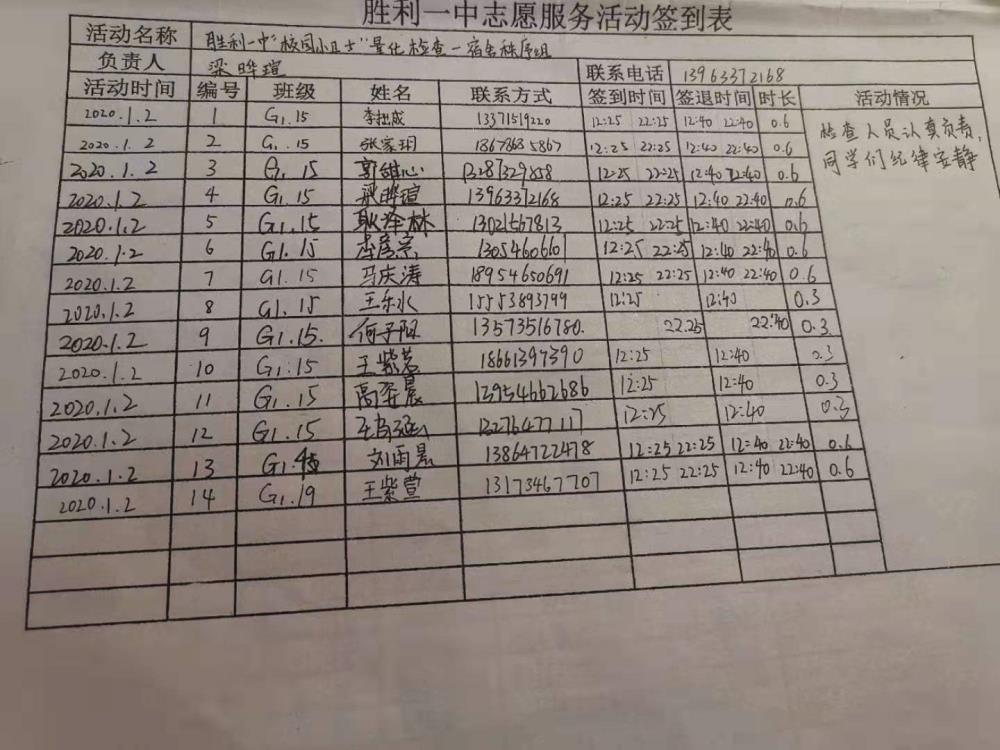 胜利一中志愿服务活动签到表
活动名称 胜利一中"校园小卫士"量化检查-宿舍秩序组
负责人 梁晔瑄 联系电话 13963372168
活动时间 编号 班级 姓名 联系方式 签到时间 签退时间 时长 活动情况
2020.1.2 1 G1.15 李拙成 13371519220 12:25 22:25 12:40 22:40 0.6
检查人员认真负责,
同学们纪律安静
2020.1.2 2 G1.15 张家玥 18678685867 12:25 22:25 12:40 22:40 0.6
2020.1.2 3 G1.15 郭甜心 13287329858 12:25 22:25 12:40 22:40 0.6
2020.1.2 4 G1.15 梁晔瑄 13963372168 12:25 22:25 12:40 22:40 0.6
2020.1.2 5 G1.15 耿泽林 13021567813 12:25 22:25 12:40 22:40 0.6
2020.1.2 6 G1.15 李彦宗 13054606601 12:25 22:25 12:40 22:40 0.6
2020.1.2 7 G1.15 马庆涛 18954650691 12:25 22:25 12:40 22:40 0.6
2020.1.2 8 G1.15 王乐水 15553893799 12:25 12:40 0.3
2020.1.2 9 G1.15. 何子阳 13573516780. 22:25 22:40 0.3
2020.1.2 10 G1.15 王紫茗 18661397390 12:25 12:40 0.3
2020.1.2 11 G1.15 13954662686 12:25 12:40 0.3
2020.1.2 12 G1.15 12276477117 12:25 12:40 0.3
2020.1.2 13 刘雨晨 13864722478 12:25 22:25 12:40 22:40 0.6
2020.1.2 14 G1.19 王紫萱 13173467707 12:25 22:25 12:40 22:40 0.6